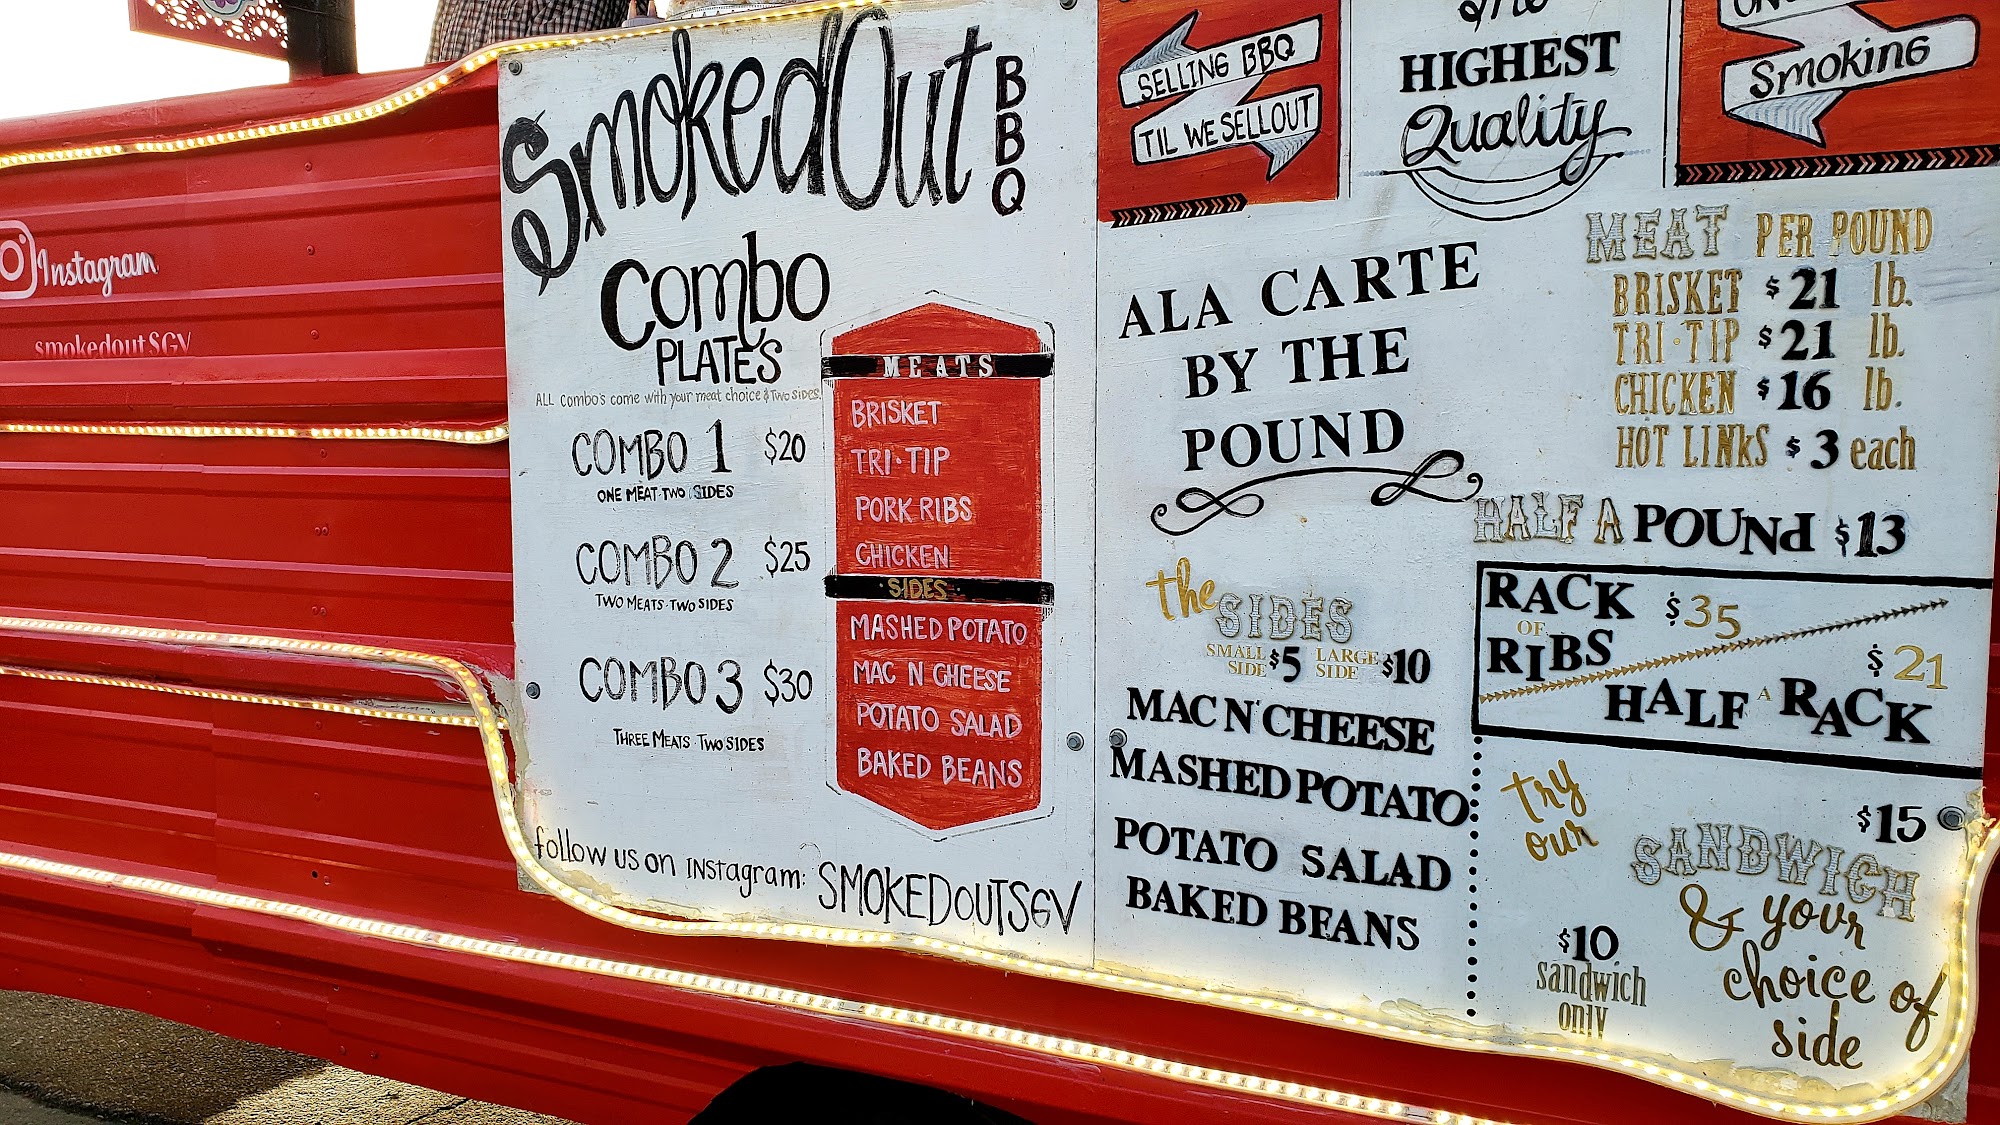 Instagram
smokedoutSGV
SmokedOut BBQ
Combo
PLATE'S
ALL Combo's come with your meat choice & Two sides.
COMBO 1 $20
ONE MEAT·TWO SIDES
COMBO 2 $25
TWO MEATS·TWO SIDES
COMBO 3 $30
THREE MEATS TWO SIDES
MEATS
BRISKET
TRI·TIP
PORK RIBS
CHICKEN
·SIDES·
MASHED POTATO
MAC N CHEESE
POTATO SALAD
BAKED BEANS
follow us on Instagram: SMOKEDOUTSGV
SELLING BBQ
TIL WE SELLOUT
The
HIGHEST
Quality
Smoking
ALA CARTE
BY THE
POUND
MEAT PER POUND
BRISKET $21 lb.
TRI·TIP $21 lb.
CHICKEN $16 lb.
HOT LINKS $3 each
HALF A POUNd $13
the SIDES
SMALL SIDE $5 LARGE SIDE $10
MAC N' CHEESE
MASHED POTATO
POTATO SALAD
BAKED BEANS
RACK OF RIBS $35
HALF A RACK $21
try
our
$15
SANDWICH
& your
choice of
side
$10
sandwich
only